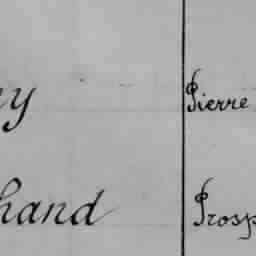 y Pierre
hand Prosp